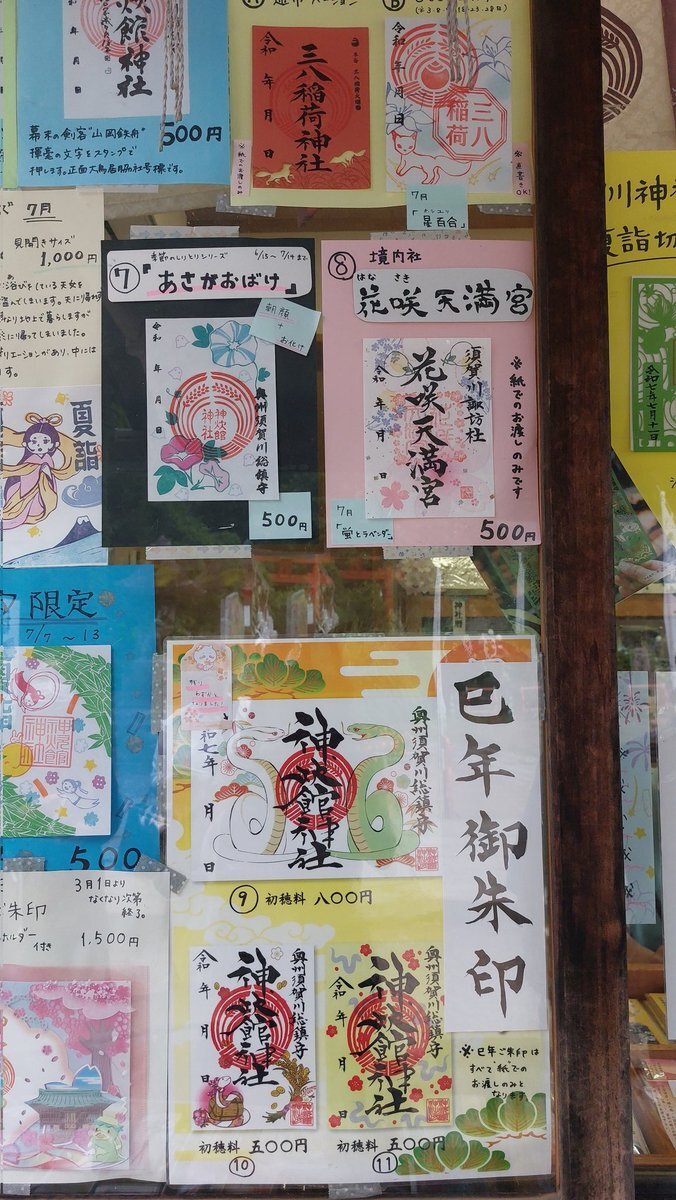 神社
令和 年 月 日
幕末の剣客"山岡鉄舟"
揮毫の文字をスタンプで
押します。正面大鳥居脇の社号標です。
500円
三八稲荷神社
令和 年 月 日
※紙でのお渡しのみ
令和 年 月 日
三八稲荷
※直書きOK!
7月
「星百合」
7月
見開きサイズ
1,000円
夏詣
季節のしりとりシリーズ
6/15〜7/14まで
⑦『あさがおばけ』
朝顔
+
お化け
令和 年 月 日
神炊館神社
奥州須賀川総鎮守
500円
⑧ 境内社
はな さき
花咲天満宮
※紙でのお渡しのみです
須賀川諏訪社
花咲天満宮
令和 年 月 日
7月
「蛍とラベンダー」
500円
川神社
夏詣切
令和七年七月十一日
限定
7/7〜13
500
3月1日より
なくなり次第
終了。
ご朱印
ホルダー
付き
1,500円
巳年御朱印
残り
わずかと
なりました!
奥州須賀川総鎮守
神炊館神社
和七年 月 日
⑨ 初穂料 八〇〇円
奥州須賀川総鎮守
神炊館神社
令和 年 月 日
初穂料 五〇〇円
⑩
奥州須賀川総鎮守
神炊館神社
令和 年 月 日
初穂料 五〇〇円
⑪
※巳年ご朱印は
すべて"紙"での
お渡しのみと
なります。